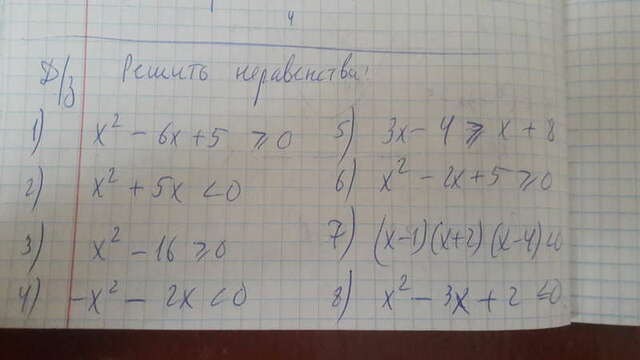 4
Д/З Решить неравенства:
1) x² - 6x + 5 ⩾ 0
2) x² + 5x < 0
3) x² - 16 ⩾ 0
4) -x² - 2x < 0
5) 3x - 4 ⩾ x + 8
6) x² - 2x + 5 ⩾ 0
7) (x-1)(x+2)(x-4)<0
8) x² - 3x + 2 ⩽ 0